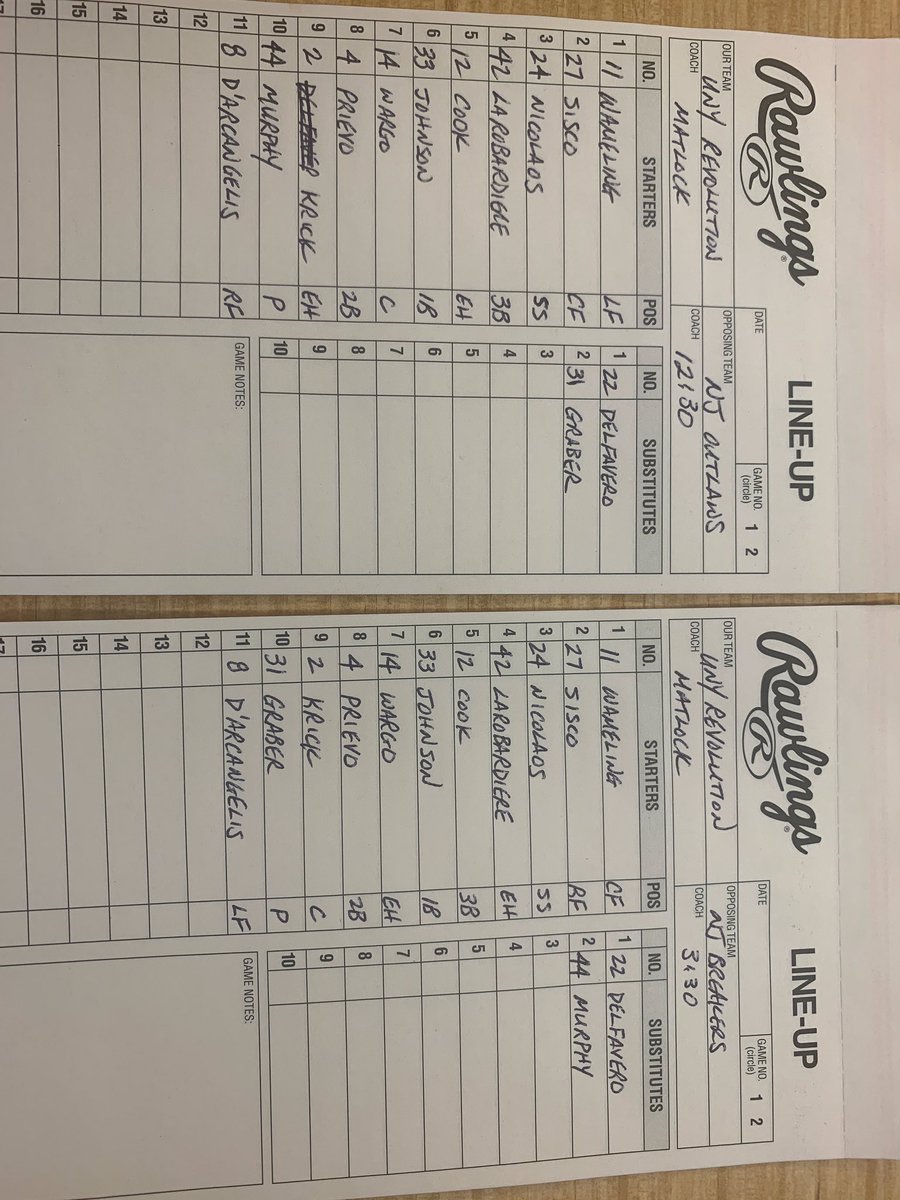 Rawlings
R
LINE-UP
DATE
GAME NO. (circle) 1 2
OUR TEAM UNY REVOLUTION
OPPOSING TEAM NJ OUTLAWS
COACH MATLOCK
COACH 12:30
NO. STARTERS POS
1 11 WAMELING LF
2 27 SISCO CF
3 24 NICOLAOS SS
4 42 LAROBARDIERE 3B
5 12 COOK EH
6 33 JOHNSON 1B
7 14 WARGO C
8 4 PRIEVO 2B
9 2 KRICK EH
10 44 MURPHY P
11 8 D'ARCANGELIS RF
12
13
14
15
16
17
NO. SUBSTITUTES
1 22 DELFAVERO
2 31 GRABER
3
4
5
6
7
8
9
10
GAME NOTES:
Rawlings
R
LINE-UP
DATE
GAME NO. (circle) 1 2
OUR TEAM UNY REVOLUTION
OPPOSING TEAM NJ BREAKERS
COACH MATLOCK
COACH 3:30
NO. STARTERS POS
1 11 WAMELING CF
2 27 SISCO RF
3 24 NICOLAOS SS
4 42 LAROBARDIERE EH
5 12 COOK 3B
6 33 JOHNSON 1B
7 14 WARGO EH
8 4 PRIEVO 2B
9 2 KRICK C
10 31 GRABER P
11 8 D'ARCANGELIS LF
12
13
14
15
16
17
NO. SUBSTITUTES
1 22 DELFAVERO
2 44 MURPHY
3
4
5
6
7
8
9
10
GAME NOTES: